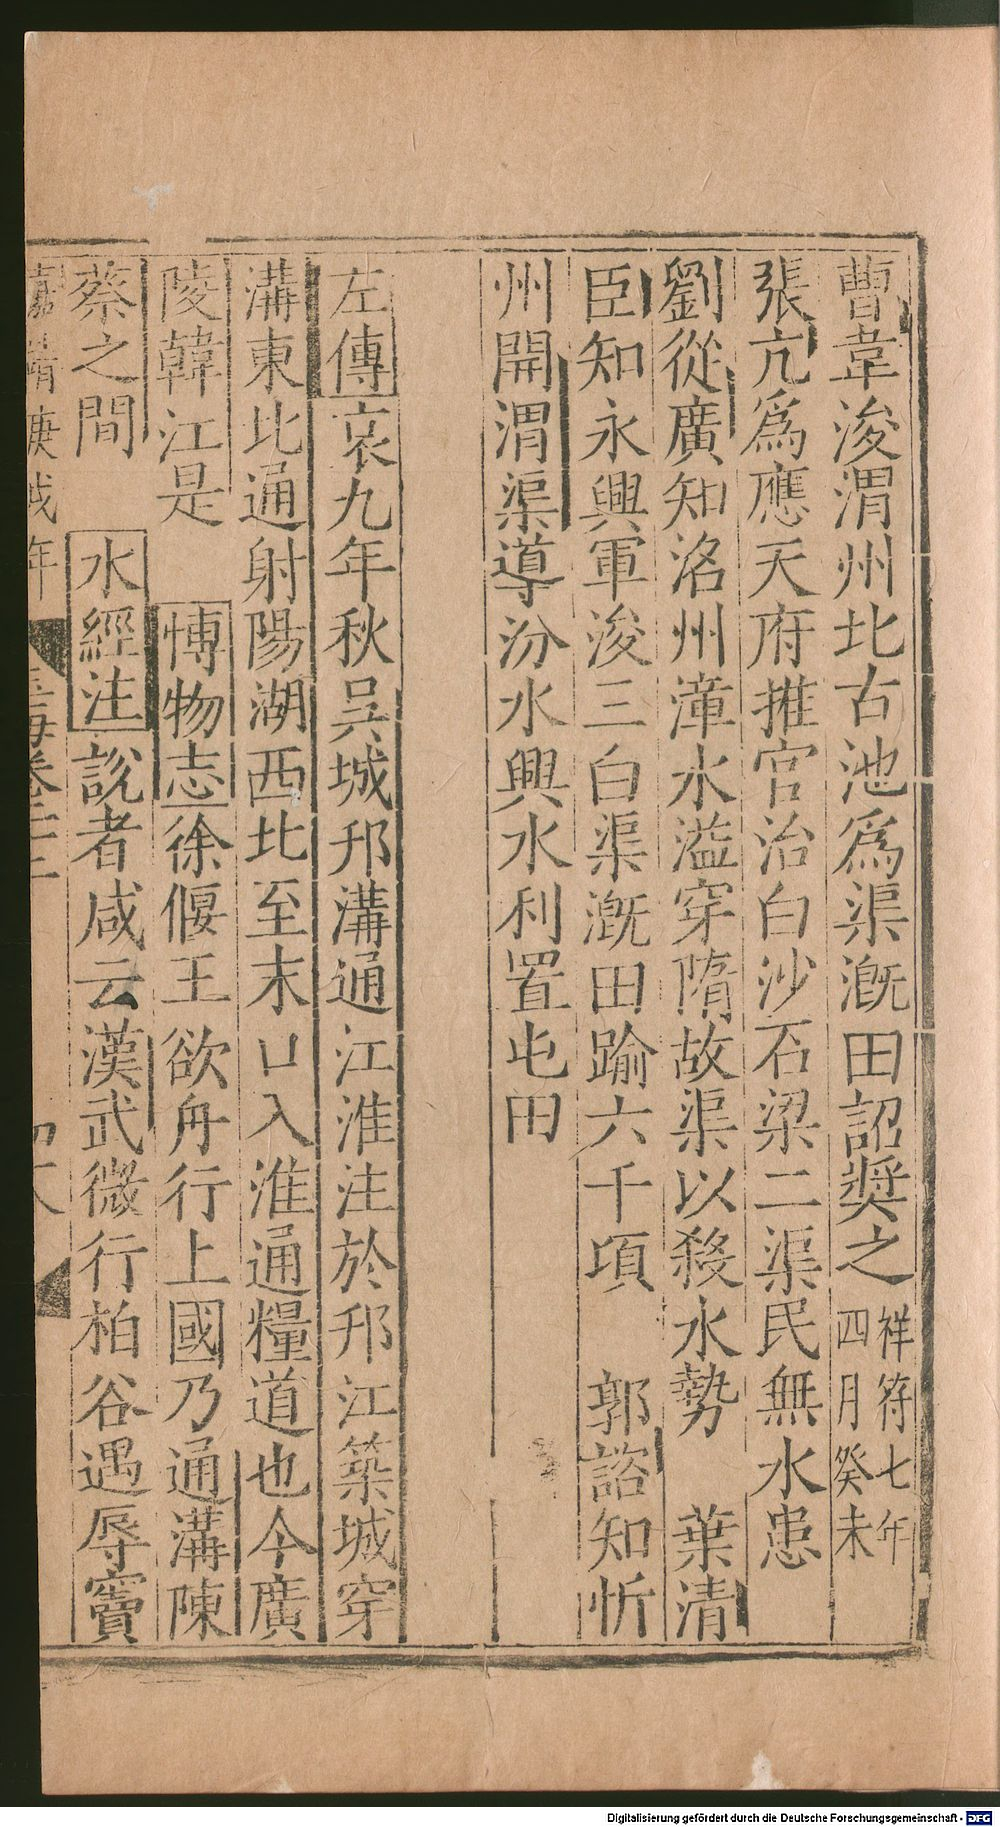 曹韋浚渭州北古池爲渠漑田詔奬之祥符七年四月癸未
張亢爲應天府推官治白沙石梁二渠民無水患
劉從廣知洺州漳水溢穿隋故渠以殺水勢　葉清
臣知永興軍浚三白渠漑田踰六千項　郭諮知忻
州開渭渠導汾水興水利置屯田
左傳哀九年秋吳城邗溝通江淮注於邗江築城穿
溝東北通射陽湖西北至末口入淮通糧道也今廣
陵韓江是　博物志徐偃王欲舟行上國乃通溝陳
蔡之間　水經注說者咸云漢武微行柏谷遇辱竇
嘉靖庚戌年　玉海卷二十二
Digitalisierung gefördert durch die Deutsche Forschungsgemeinschaft - DFG